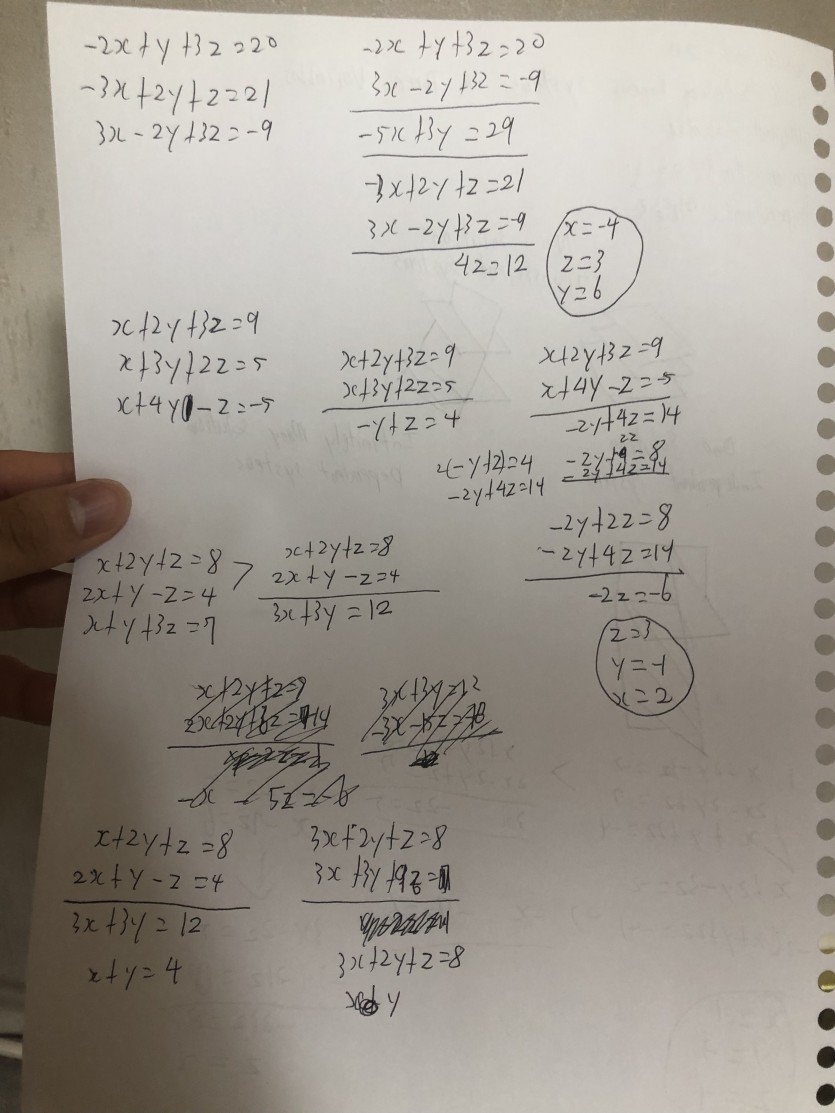 -2x+y+3z=20
-3x+2y+z=21
3x-2y+3z=-9
-2x+y+3z=20
3x-2y+3z=-9
-5x+3y=29
-3x+2y+z=21
3x-2y+3z=-9
4z=12
x=-4
z=3
y=6
x+2y+3z=9
x+3y+2z=5
x+4y-z=-5
x+2y+3z=9
x+3y+2z=5
-y+z=4
x+2y+3z=9
x+4y-z=-5
-2y+4z=14
2(-y+z)=4
-2y+4z=14
-2y+2z=8
-2y+4z=14
-2y+2z=8
-2y+4z=14
-2z=-6
z=3
y=-1
x=2
x+2y+z=8
2x+y-z=4
x+y+3z=7
>
x+2y+z=8
2x+y-z=4
3x+3y=12
3x+3y=12
x+2y+z=8
2x+y-z=4
3x+3y=12
x+y=4
3x+2y+z=8
3x+2y+z=8